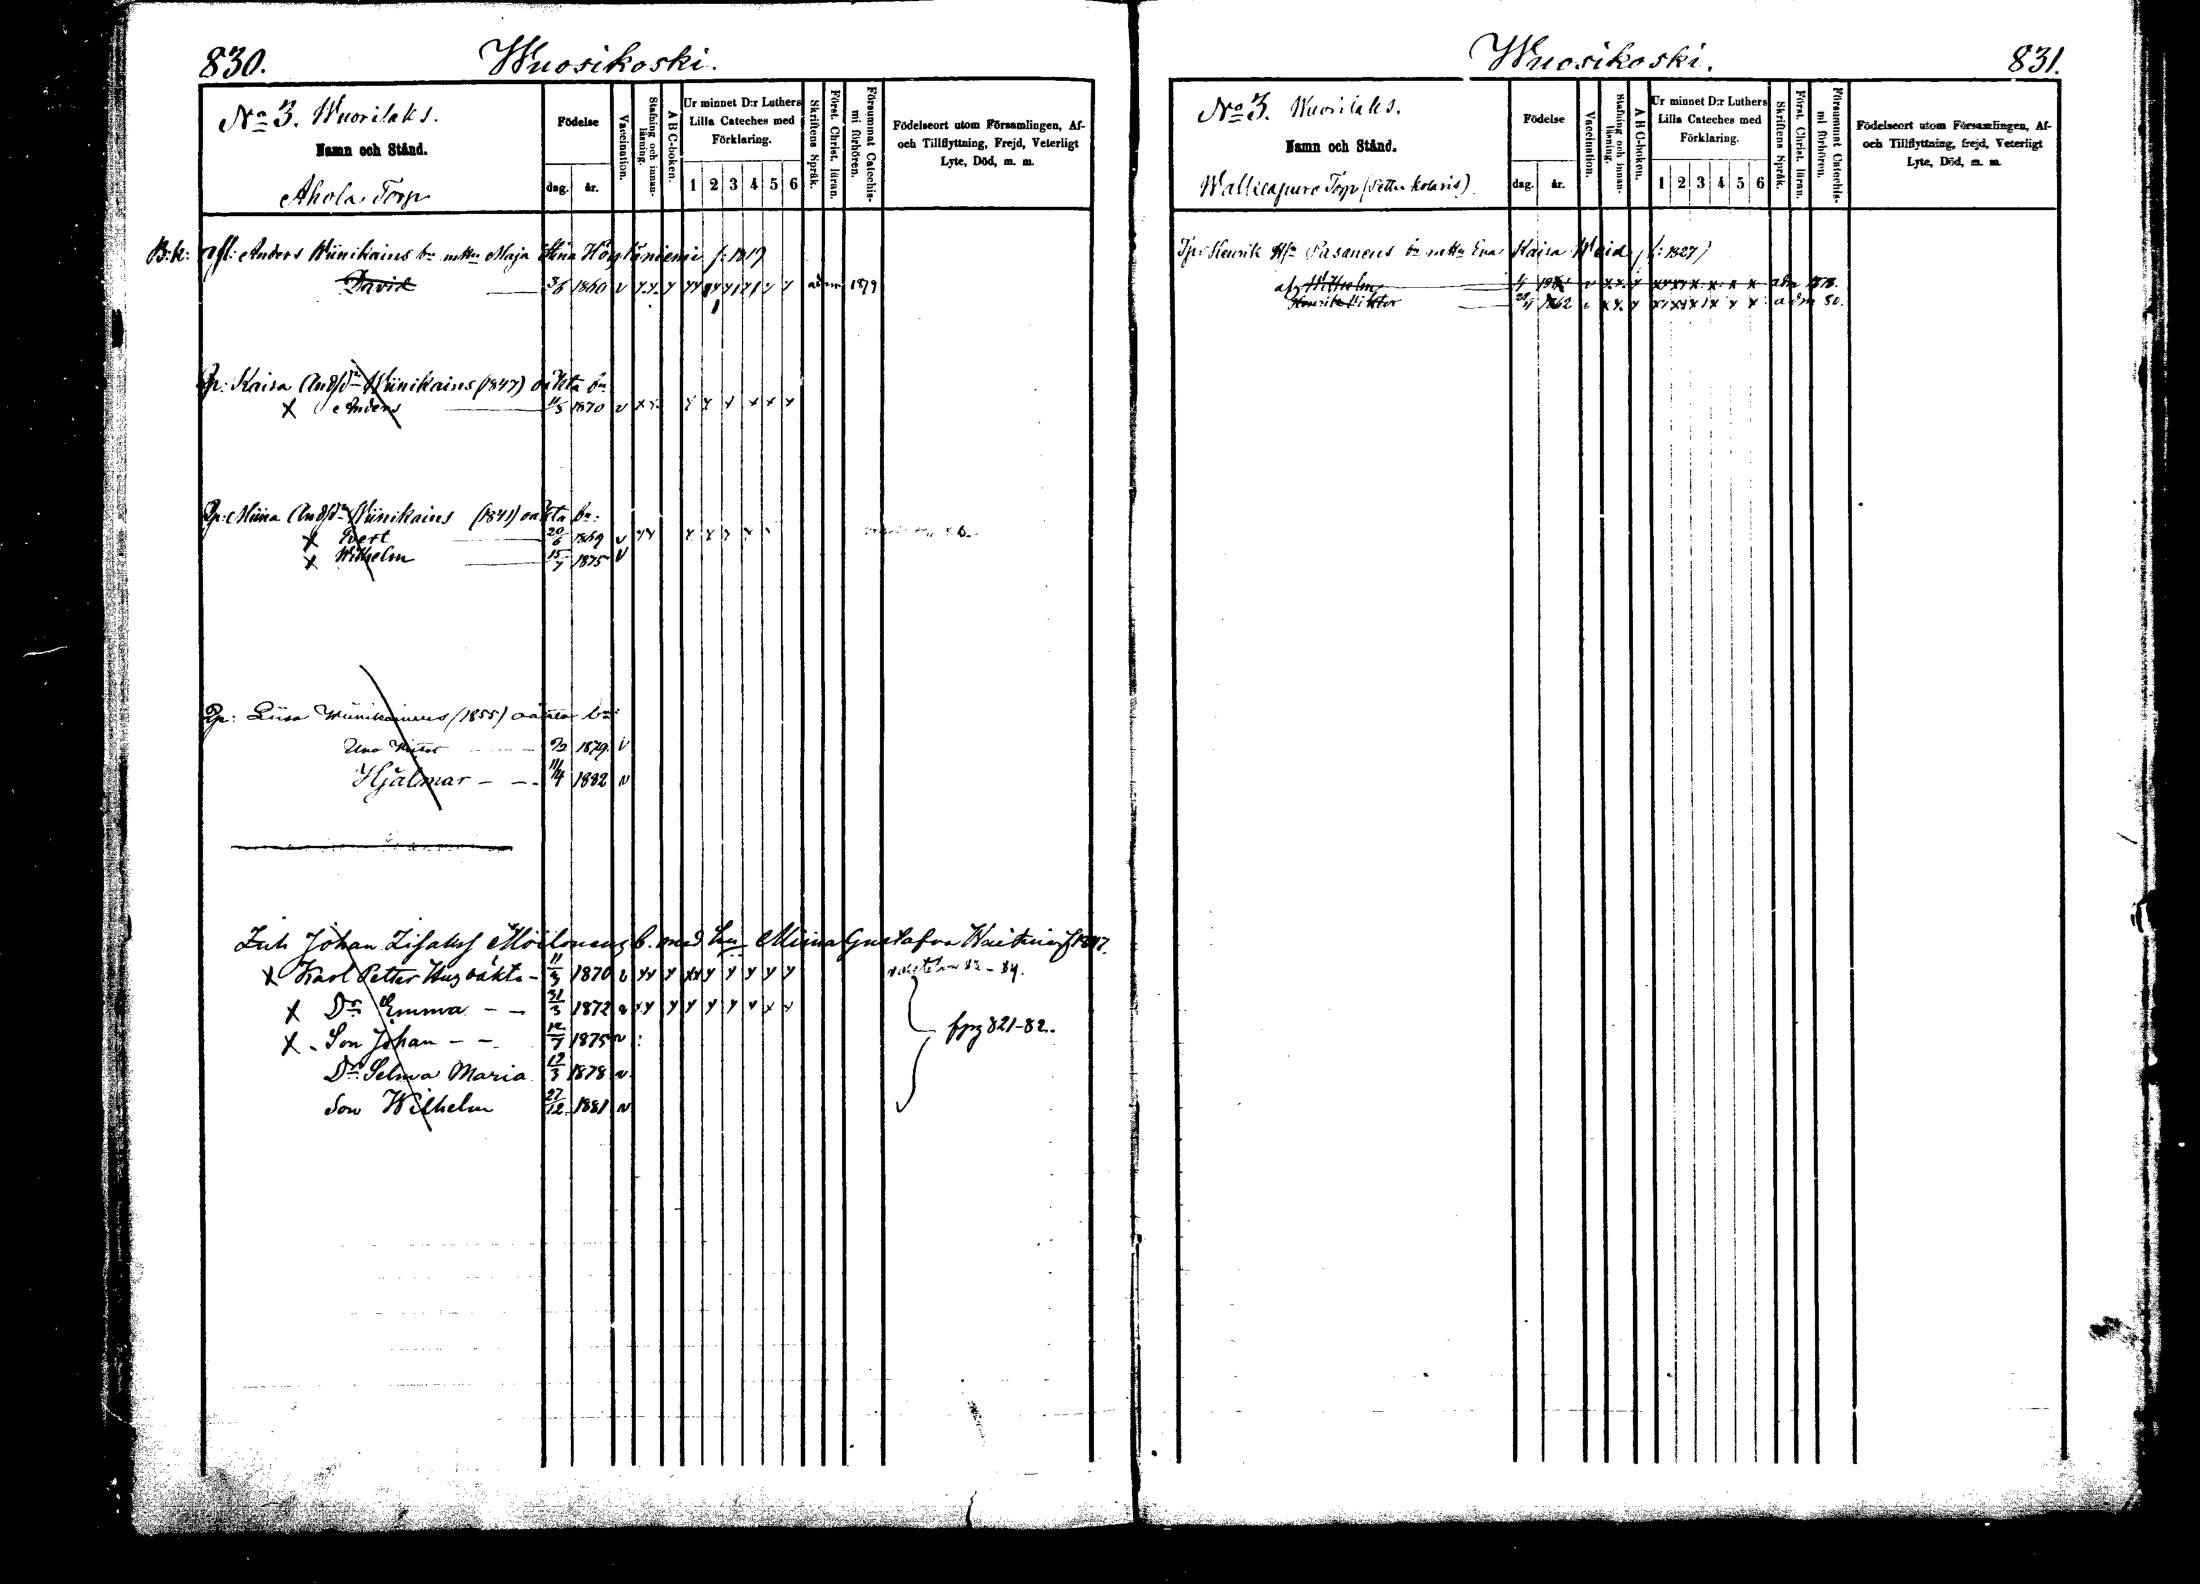 830.
Wuosikoski.
No 3. Wuorilaks.
Namn och Stånd.
Ahola Torp
Födelse
dag.
år.
Vaccination.
Stafning och innan-
läsning.
A B C-boken.
Ur minnet D:r Luthers
Lilla Cateches med
Förklaring.
1 2 3 4 5 6
Skriftens Språk.
Först. Christ. läran.
Försummat Catechis-
mi förhören.
Födelseort utom Församlingen, Af-
och Tillflyttning, Frejd, Veterligt
Lyte, Död, m. m.
B:k: Anders Wiinikains bn m hu Maja Stina f: 1819
David 3/6 1860 v adm 1879
Kaisa And/dr Wiinikains (1847) oäkta bn
x Anders 11/5 1870 v
Miina And/dr Wiinikains (1841) oäkta bn:
x Evert 20/6 1869 v
x Wilhelm 15/7 1875 v
Liisa Wiinikainens (1855) oäkta bn:
Uno 1879 v
Hjalmar - - 11/4 1882 v
Inh Johan Moilanens b. med hu Miina Gustafva
x Karl Petter Hus oäkta - 11/3 1870 v
x Dr Emma - - 31/3 1872 v
x Son Johan - - 12/7 1875 v
Dr Selma Maria 12/3 1878 v
Son Wilhelm 27/12 1881 v
83-84.
fpg 821-82.
Wuosikoski.
831.
No 3. Wuorilaks.
Namn och Stånd.
Torp (Petter Kolaris).
Födelse
dag.
år.
Vaccination.
Stafning och innan-
läsning.
A B C-boken.
Ur minnet D:r Luthers
Lilla Cateches med
Förklaring.
1 2 3 4 5 6
Skriftens Språk.
Först. Christ. läran.
Försummat Catechis-
mi förhören.
Födelseort utom Församlingen, Af-
och Tillflyttning, frejd, Veterligt
Lyte, Död, m. m.
Tp: Henrik Pasanens bn m hu Eva Kaisa (f: 1827)
Wilhelm adm 1878.
Henrik Viktor 1862 adm 80.